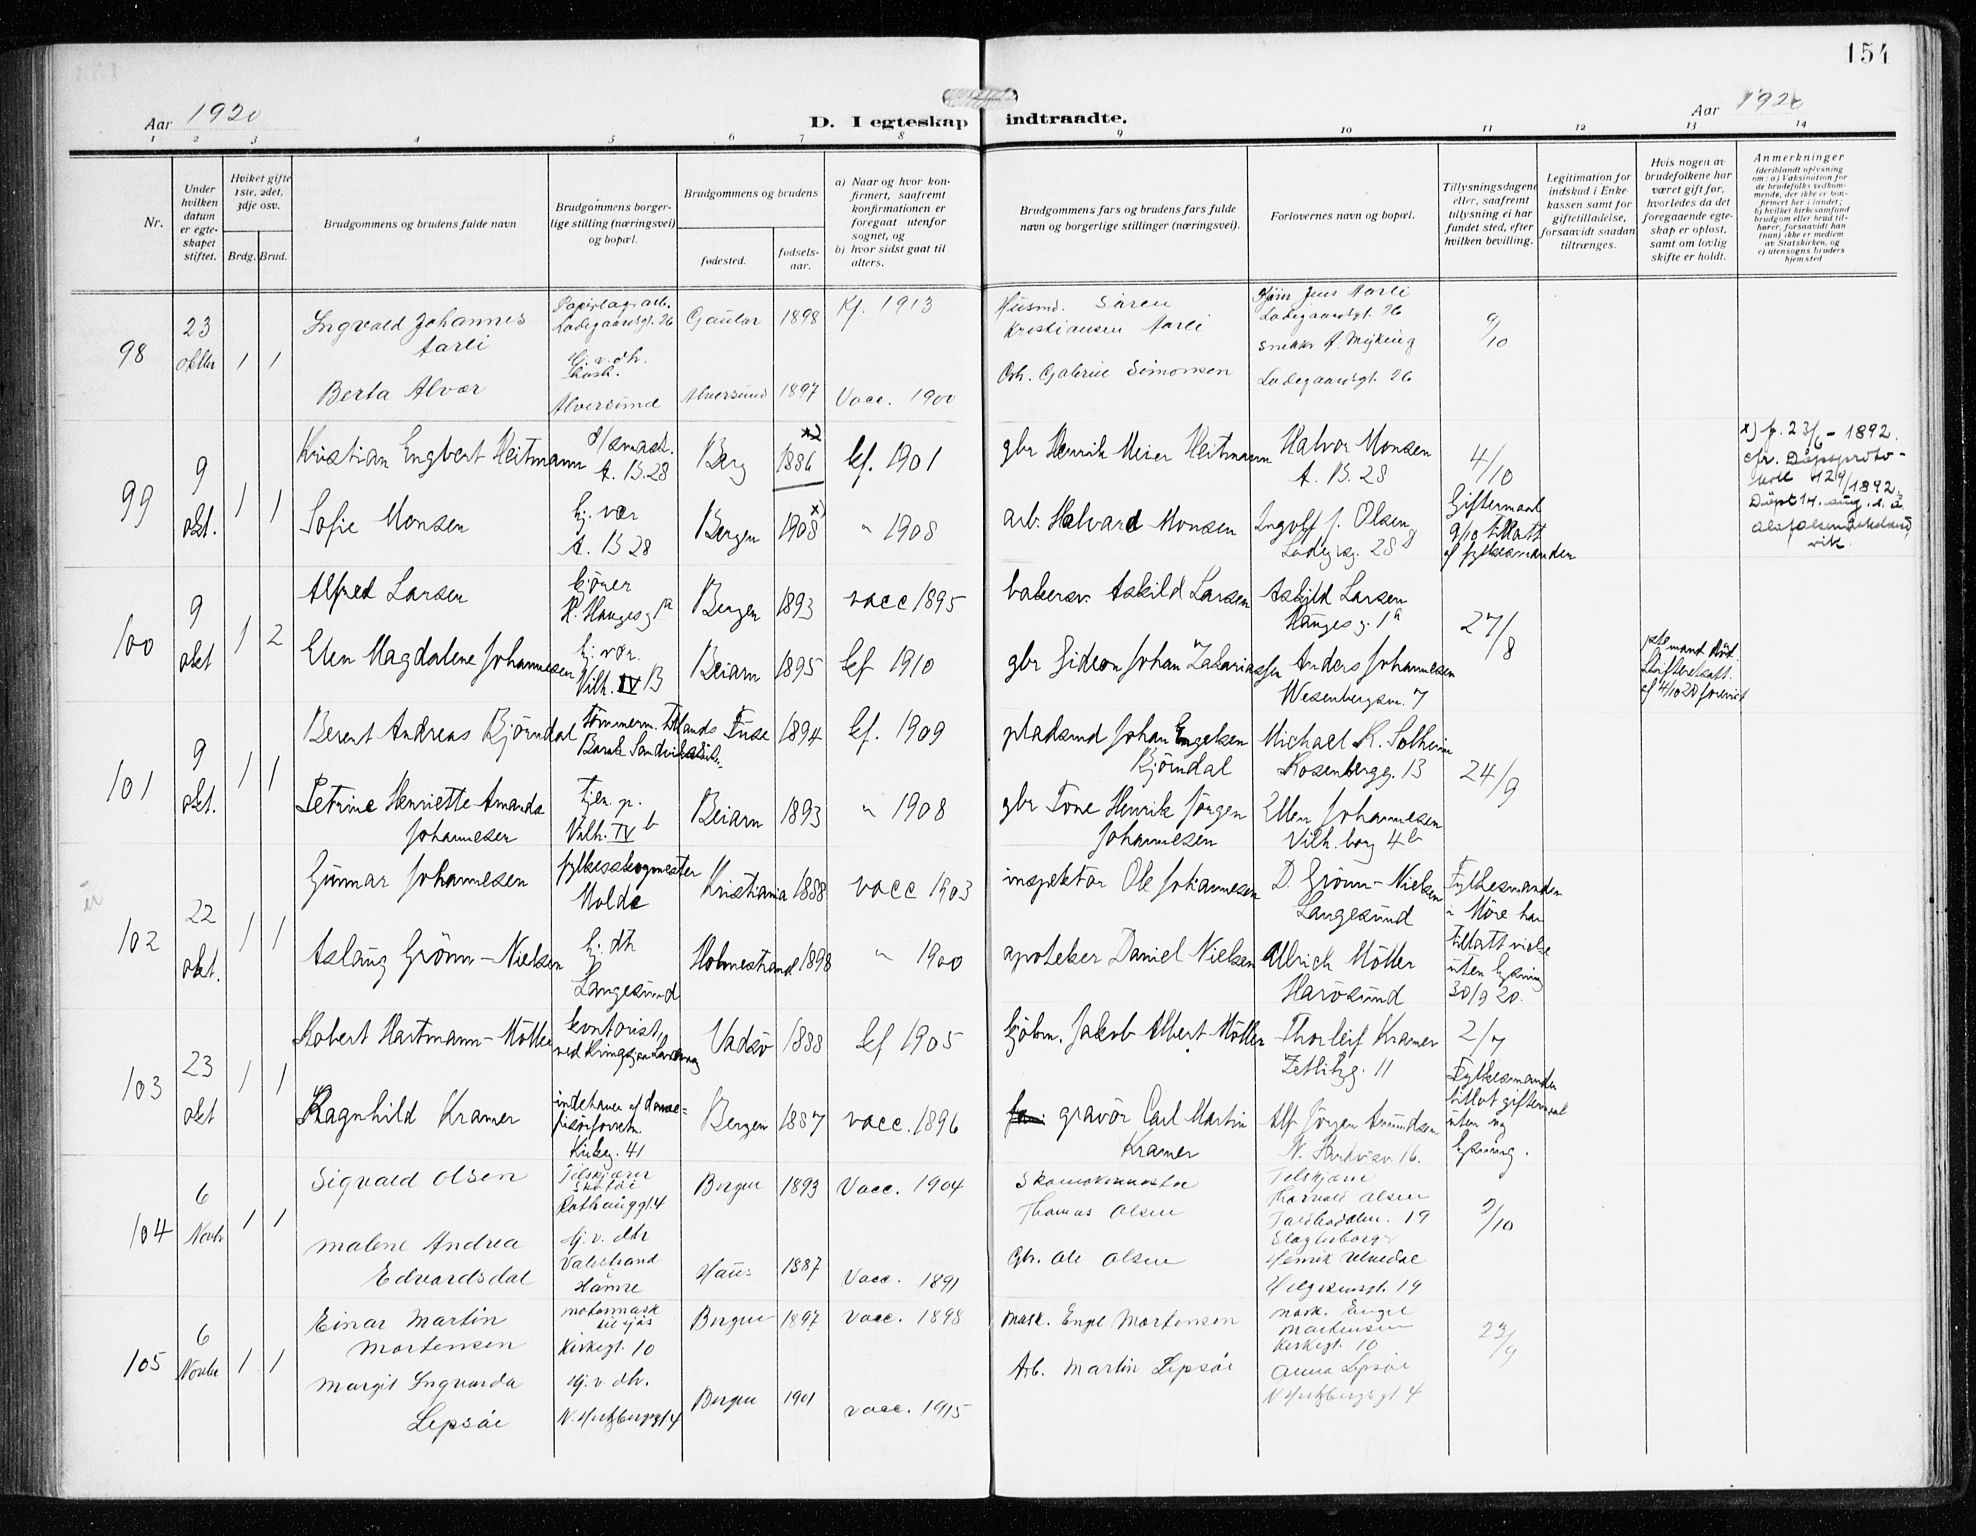 154
Aar 1920
D. I egteskap indtraadte.
Aar 1920
1 2 3 4 5 6 7 8 9 10 11 12 13 14
Nr.
Under hvilken datum er egteskapet stiftet.
Hvilket gifte 1ste, 2det, 3dje osv.
Brdg. Brud.
Brudgommens og brudens fulde navn
Brudgommens borgerlige stilling (næringsvei) og bopæl.
Brudgommens og brudens
fødested.
fødselsaar.
a) Naar og hvor konfirmert, saafremt konfirmationen er foregaat utenfor sognet, og
b) hvor sidst gaat til alters.
Brudgommens fars og brudens fars fulde navn og borgerlige stillinger (næringsvei).
Forlovernes navn og bopæl.
Tillysningsdagene eller, saafremt tillysning ei har fundet sted, efter hvilken bevilling.
Legitimation for indskud i Enkekassen samt for giftetilladelse, forsaavidt saadan tiltrænges.
Hvis nogen av brudefolkene har været gift før, hvorledes da det foregaaende egteskap er opløst, samt om lovlig skifte er holdt.
Anmerkninger
98
23 oktbr
1 1
Ingvald Johannes Aarli
Ladegaardsgt. 26
Gaular 1898
Kf. 1913
Husmd. Sören Kristiansen Aarli
Jens Aarli
Ladegaardsgt. 26
9/10
Berta Alvær
Hj. v. dh.
Alversund
Alversund 1897
Vacc. 1900
Simonsen
Ladegaardsgt. 26
99
9 okt.
1 1
Kristian Engbert Heitmann
d/smask.
A. B. 28
Berg 1886 x)
kf. 1901
gbr Henrik Meier Heitmann
Halvor Monsen
A. B. 28
4/10
x) f. 23/6 – 1892.
cfr. Dåpsproto-
Sofie Monsen
hj. vær
A. B 28
Bergen 1908 x)
" 1908
arb. Halvard Monsen
Ingolf J. Olsen
Giftermaal
9/10 tillatt
af fylkesmanden
100
9 okt
1 2
Alfred Larsen
kjörer
H. Haugesg 1a
Bergen 1893
vacc 1895
bakersv. Askild Larsen
Askild Larsen
Haugesg. 1a
27/8
Elen Magdalene Johannesen
hj. vær.
Vilh. IV B
Beiarn 1895
kf 1910
gbr Gideon Johan Zakariassen
Anders Johannesen
Wesenbergsm. 7
1ste mand död.
Skifteretsatt.
af 4/10 20 forevist
101
9 okt.
1 1
Berent Andreas Björndal
Tömmerm.
Fuse 1894
kf. 1909
pladsmd Johan Engelsen Björndal
Michael K. Solheim
Rosenbergg. 13
24/9
Petrine Henriette Amanda Johannesen
tjen. p.
Vilh. IV b
Beiarn 1893
" 1908
gbr Tone Henrik Jörgen Johannesen
Ellen Johannesen
Vilh. borg 4b
102
22 okt.
1 1
Gunnar Johannesen
fylkesskogmester
Molde
Kristiania 1888
vacc 1903
inspektör Ole Johannesen
D. Grönn-Nielsen
Langesund
Fylkesmanden
i Möre har
tillatt vielse
uten lysning
30/9 20.
Aslaug Grönn-Nielsen
hj. dtr
Langesund
Holmestrand 1898
" 1900
apoteker Daniel Nielsen
Ullrich Möller
Harösund
103
23 okt
1 1
Robert Hartmann-Möller
kontorist
Vadsö 1888
kf 1905
kjöbm. Jakob Albert Möller
Thorleif Kramer
Zetlitzg. 11
2/7
Fylkesmanden
tillot giftermaal
uten ny
lysning.
Ragnhild Kramer
indehaver af dame-
frisörforretn.
Kirkeg. 41
Bergen 1887
vacc. 1896
gravör Carl Martin Kramer
Alf Jörgen Amundsen
104
6 Novbr
1 1
Sigvald Olsen
Tilskjærer
Bergen 1893
Vacc. 1904
Skomakermester
Thomas Olsen
Tilskjærer
Thorvald Olsen
9/10
Malene Andrea Edvardsdal
Hj. v. dtr
Valestrand
Hamre
Haus 1887
Vacc. 1891
Gbr. Ole Olsen
Henrik
Helgesensgt. 19
105
6 Novbr
1 1
Einar Martin Mortensen
motormask
til sjøs
Kirkegt. 10
Bergen 1897
Vacc. 1898
Mask. Engel Mortensen
Mask. Engel
Mortensen
Kirkegt. 10
23/9
Margit Ingvarda Lepsöe
Hj. v. dh.
Bergen 1901
Vacc. 1915
Arb. Martin Lepsöe
Anna Lepsöe